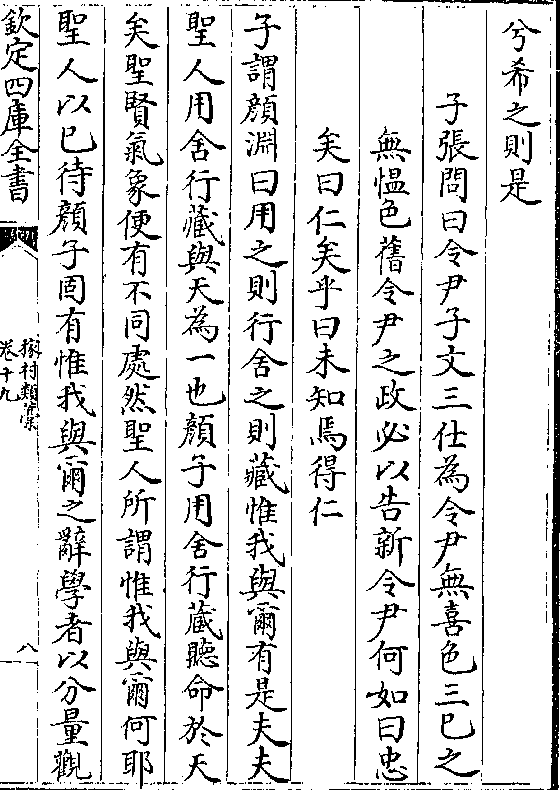 兮希之則是
子張問曰令尹子文三仕為令尹無喜色三已之
無愠色舊令尹之政必以告新令尹何如曰忠
矣曰仁矣乎曰未知焉得仁
子謂顔淵曰用之則行舍之則藏惟我與爾有是夫夫
聖人用舍行藏與天為一也顔子用舍行藏聽命於天
矣聖賢氣象便有不同處然聖人所謂惟我與爾何耶
聖人以已待顔子固有惟我與爾之辭學者以分量觀
欽定四庫全書
稼村類藁
卷十九
八